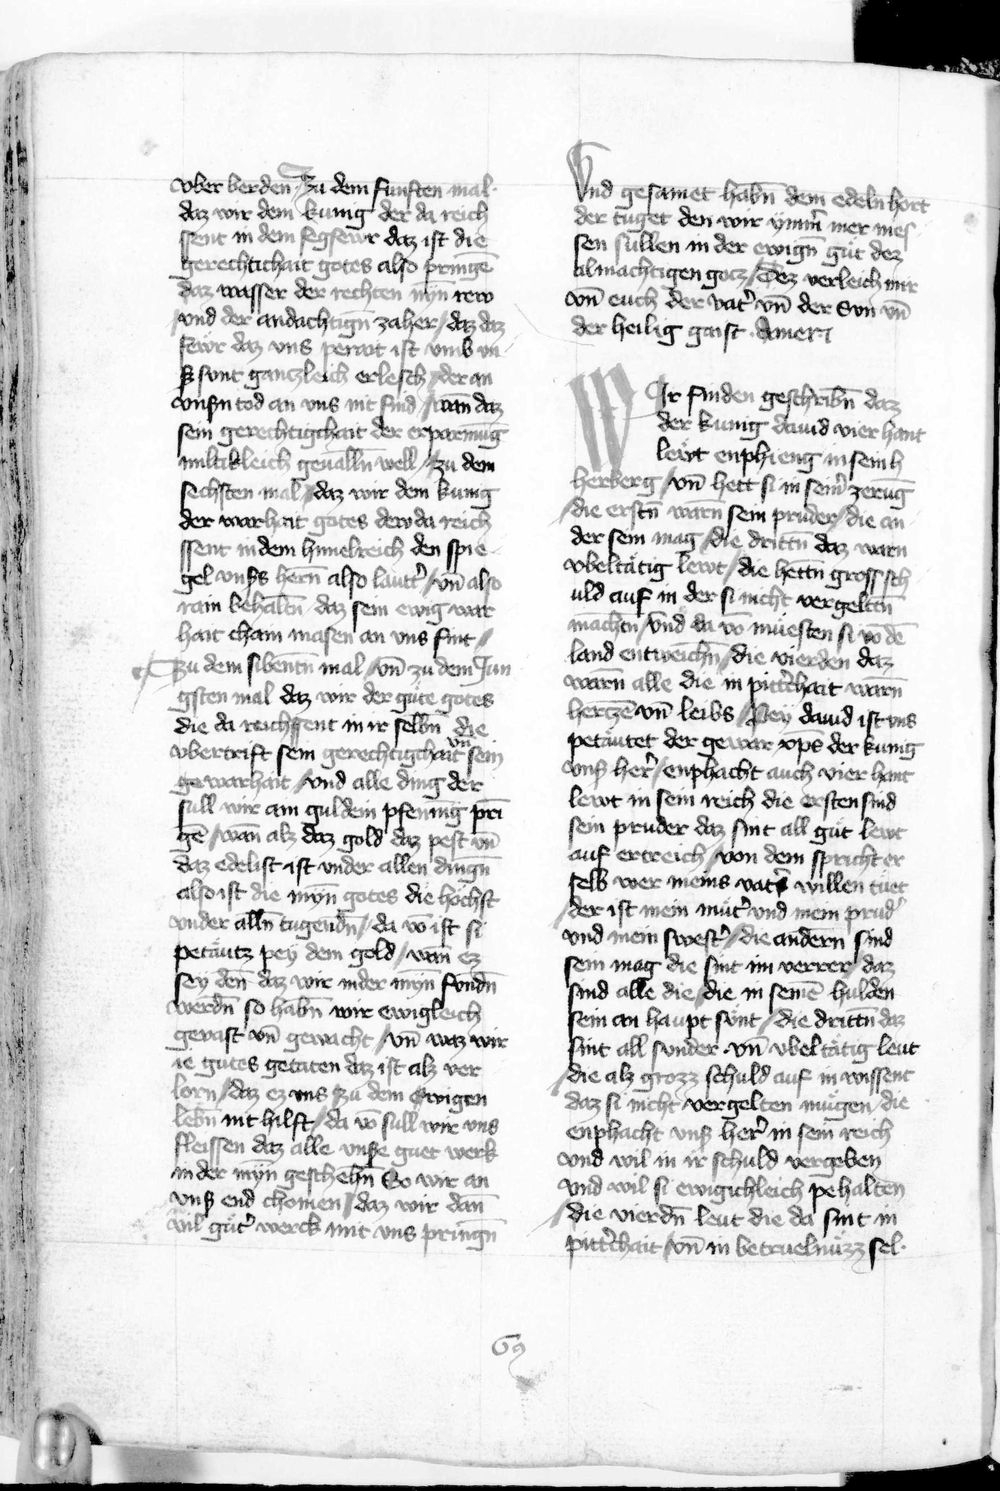 vber berden. Zu dem funften mal.
daz wir dem kunig der da reich
ssent in dem fegfewr daz ist die
gerechtichait gotes also pringē
daz wasser der rechten myn̄ rew
vnd der andachtign̄ zaher / daz daz
fewr daz vns perait ist vmb vn
ß sunt gantzleich erlesch / der an
vnßn tod an vns nit find / wan̄ daz
sein gerechtigchait der erparmūg
miltikleich geualln̄ well / zu dem
sechsten mal / daz wir dem kunig
der warhait gotes dew da reich
ssent in dem himelreich den spie
gel vnßs hern̄ also lautt̓ / vn̄ also
rain behaltn̄ / daz sein ewig war
hait chain masen an vns fint /
Zu dem sibentn̄ mal / vn̄ zu dem Jun
gsten mal daz wir der gůte gotes
die da reichsent in ir selbn̄ die
vbertrift sein gerechtigchait vn̄ sein
gewarhait / vnd alle ding der
sull wir ain guldein pfennig pri
gē / wan̄ alz daz gold daz pest vn̄
daz edelist ist vnder allen dingn̄
also ist die myn̄ gotes die hochst
vnder alln̄ tugendn̄ / da vō ist si
petäutz pey dem gold / wan̄ ez
sey den̄ daz wir in der myn̄ fundn̄
werdn̄ so habn̄ wir ewigleich
geuast vn̄ gewacht / vn̄ waz wir
ie gutes getaten daz ist alz ver
lorn / daz ez vns zu dem Ewigen
lebn̄ nit hilft / da vō sull wir vns
fleissen daz alle vnße guet werk
in der myn̄ geschehn̄ So wir an
vnß end chomen / daz wir dan̄
vil gůt̓ werck mit vns pringn̄
Und gesamet habn̄ dem edeln hort
der tuget den wir ymm̓ mer nies
sen sullen in der ewign̄ gůt dez
almachtigen gocz / Dez verleich mir
vn̄ euch der vat̓ vn̄ der Sun vn̄
der heilig gaist. Amen
WIr finden geschribn̄ daz
der kunig dauid vier hant
lewt enphieng in sein h
herberg / vn̄ hett si in seim̓ zerūg
/ die erstn̄ warn̄ sein pruder / die an
der sein mag / die drittn̄ daz warn
vbeltätig lewt / die hettn̄ gross sch
uld auf in der si nicht vergeltn̄
machtn̄ / vnd da vō muesten si vō dē
land entweichn̄ / die vierden daz
warn alle die in pitt̓chait warn̄
hertzē vn̄ leibs / Pey dauid ist vns
petäutet der gewar vps̄ der kunig
vnß her̓ / enphacht auch vier hant
lewt in sein reich die ersten sind
sein pruder daz sint all gůt lewt
auf ertreich / von dem spricht er
selb wer meins vat̓s willen tuet
/ der ist mein mut̓ vnd mein prud̓
vnd mein swest̓ / die andern̄ sind
sein mag die sint im verrer / daz
sind alle die / die in seinē hulden
sein an haupt sůnt / die drittn̄ daz
sint all sunder. vn̄ vbeltätig leut
/ die alz grozz schuld auf in wissent
daz si nicht vergelten mugen / die
enphacht vnß her̓ in sein reich
vnd wil in ir schuld vergeben
vnd wil si ewigichleich pehalten
/ die vierdn̄ leut die da sint in
pitt̓chait / vn̄ in betruebnuzz sel.
69